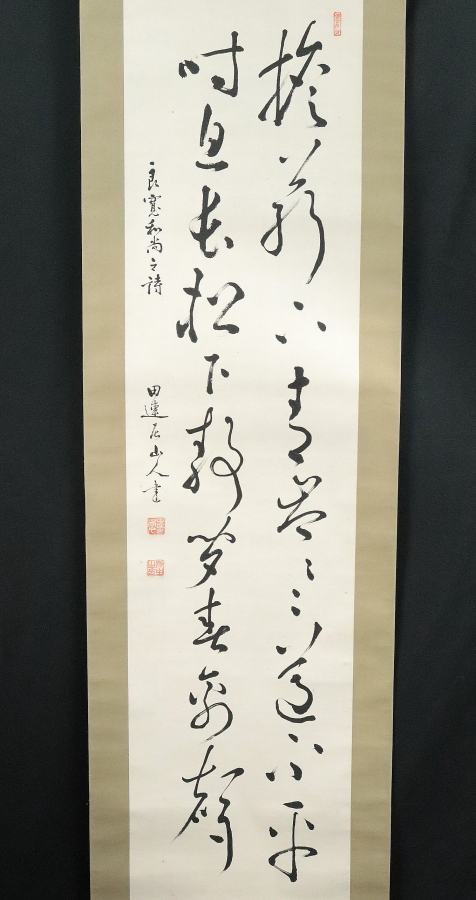 擔薪下翠岑翠岑道不平
時息長松下静聞春禽聲
良寛和尚之詩
田邊石山人書